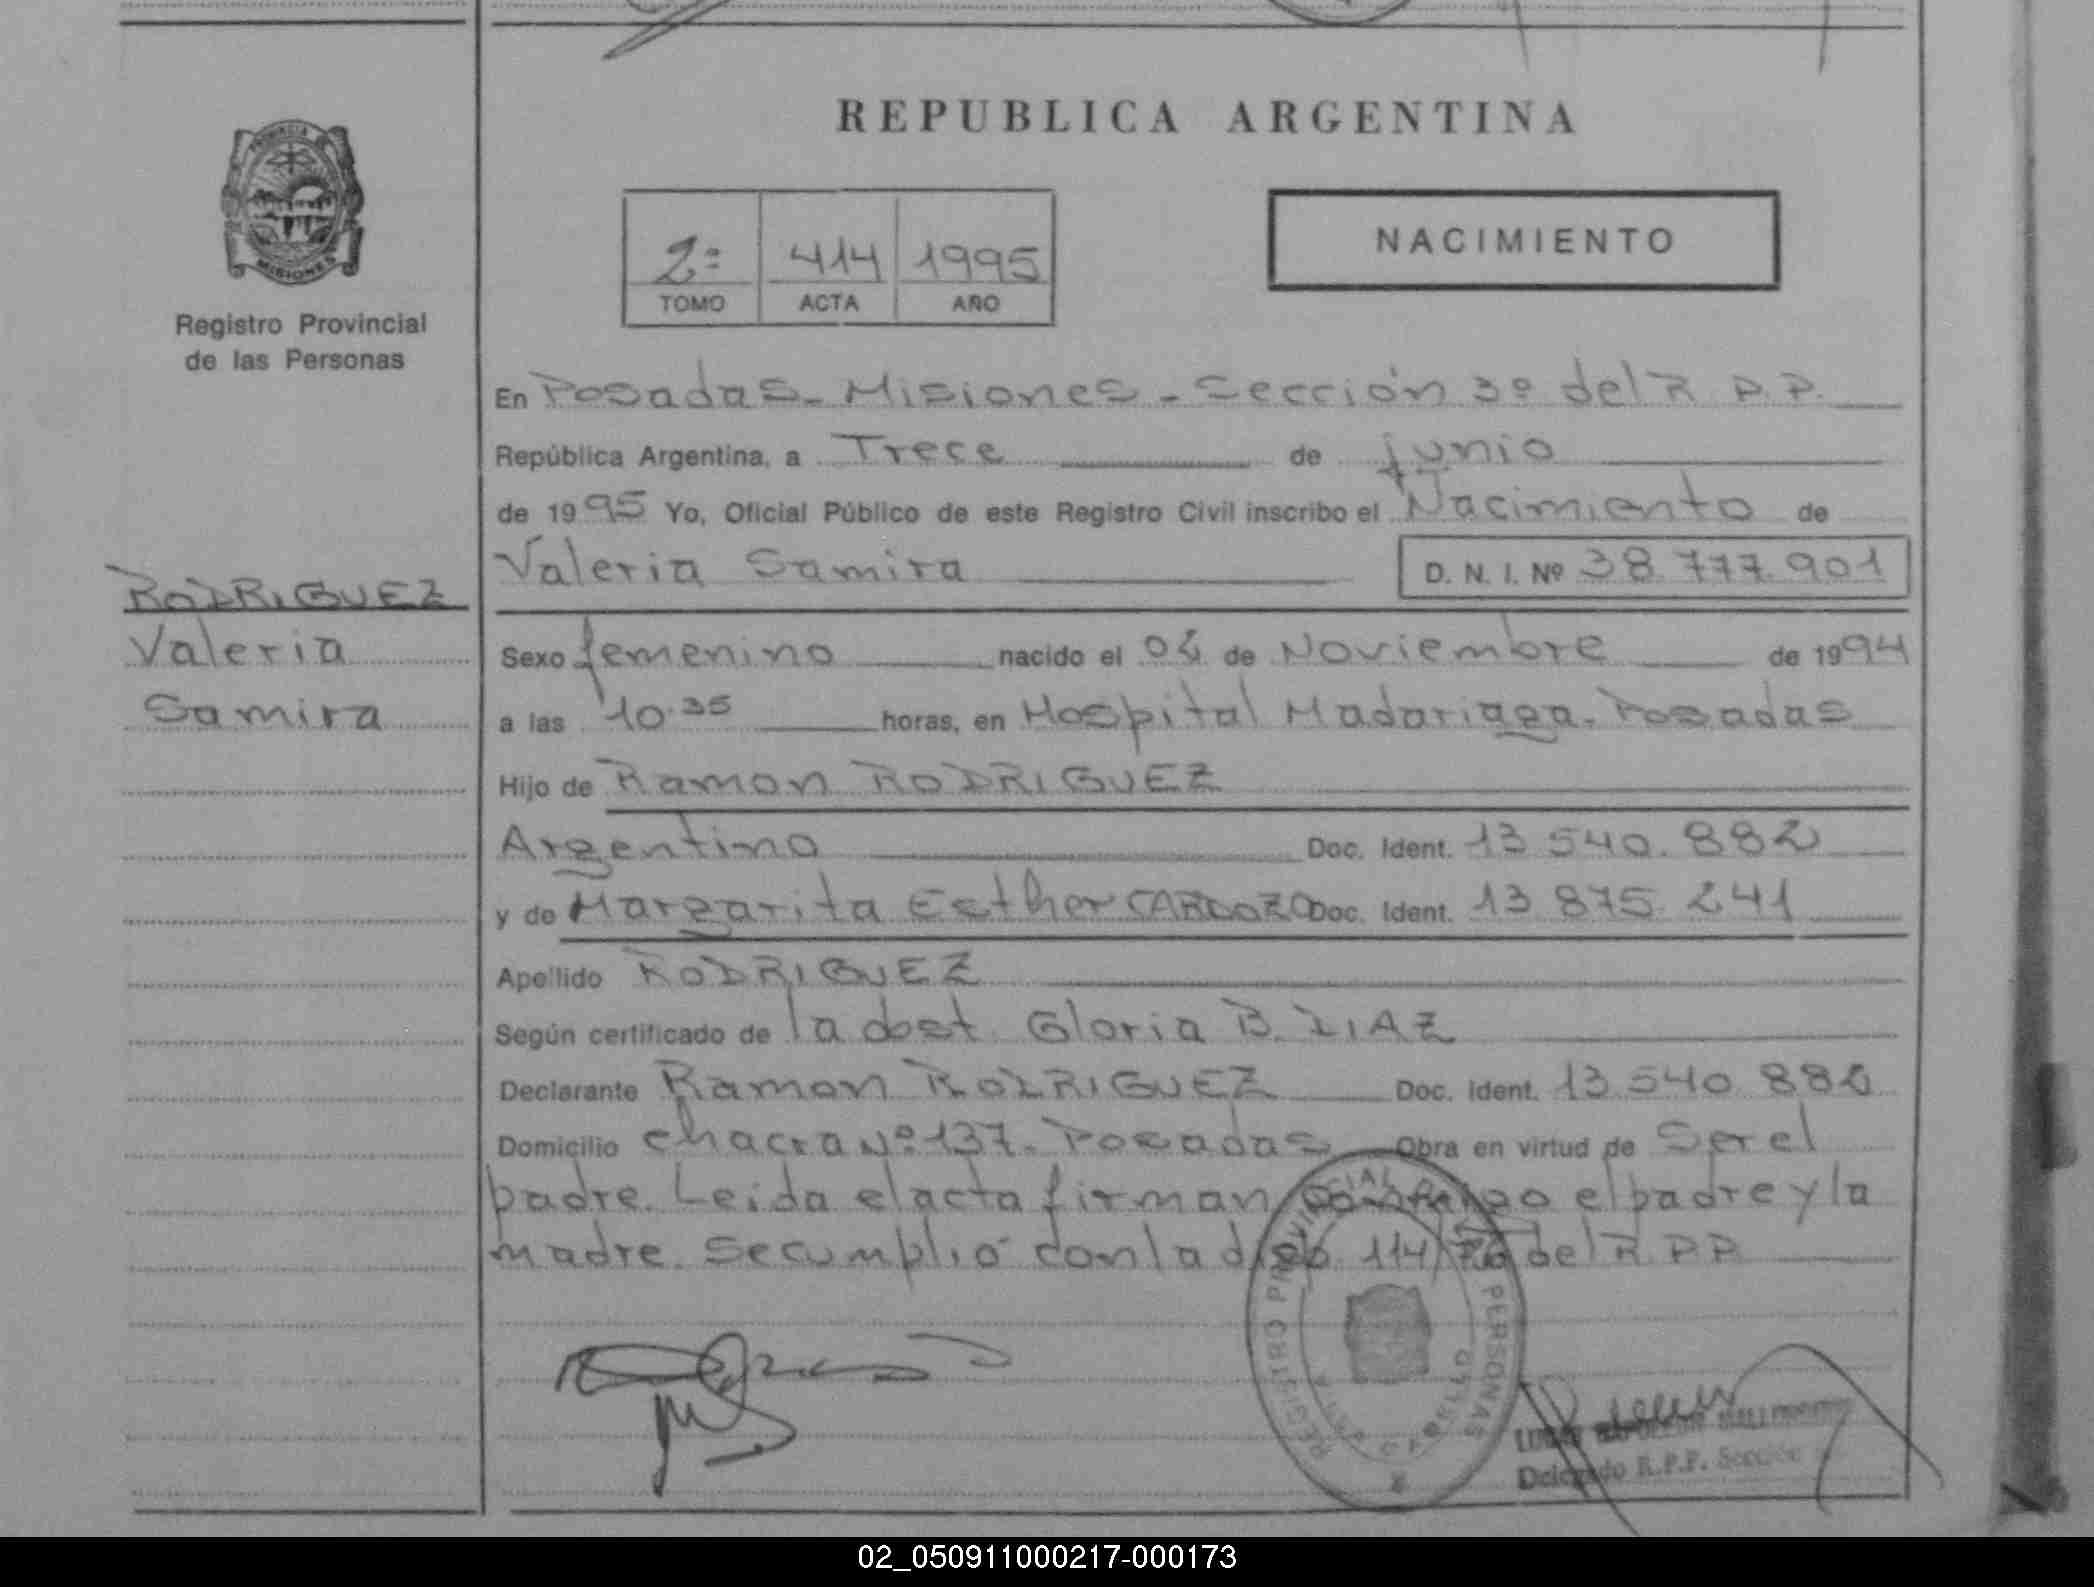 REPUBLICA ARGENTINA
PROVINCIA
MISIONES
Registro Provincial
de las Personas
2º 414 1995
TOMO ACTA AÑO
NACIMIENTO
En Posadas - Misiones - Sección 3º del R.P.P.
República Argentina, a Trece de junio
de 1995 Yo, Oficial Público de este Registro Civil inscribo el Nacimiento de
Valeria Samira D. N. I. Nº 38.777.901
RODRIGUEZ
Valeria
Samira
Sexo femenino nacido el 04 de Noviembre de 1994
a las 10.35 horas, en Hospital Madariaga - Posadas
Hijo de Ramon RODRIGUEZ
Argentino Doc. Ident. 13.540.882
y de Margarita Esther CARDOZO Doc. Ident. 13.875.241
Apellido RODRIGUEZ
Según certificado de la obst. Gloria B. DIAZ
Declarante Ramon RODRIGUEZ Doc. Ident. 13.540.882
Domicilio chacra Nº 137 - Posadas Obra en virtud de Ser el
padre. Leida el acta firman conmigo el padre y la
madre. Se cumplió con la disp. 114/76 del R.P.P.
REGISTRO PROVINCIAL PERSONAS
Delegado R.P.P. Sección
02_050911000217-000173